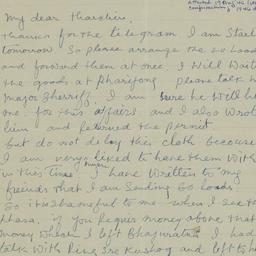 My dear Tharchin.
Thanks for the telegram I am Start
tomorrow so please arrange the 20 Loads
and forward them at once. I Will Wait
the goods at Pharijong please talk w
Major Sherriff. I am sure he will he
me for this affairs and I also Wrot
him and Returned the permit.
but do not delay this cloth because
I am very liked to have them With
in this time I have Written to my
friends that I am Sending 20 Loads
So it is shameful to me when I see th
Lhasa. if you Requir money above that
money which I left I had
talk With Kushog and left